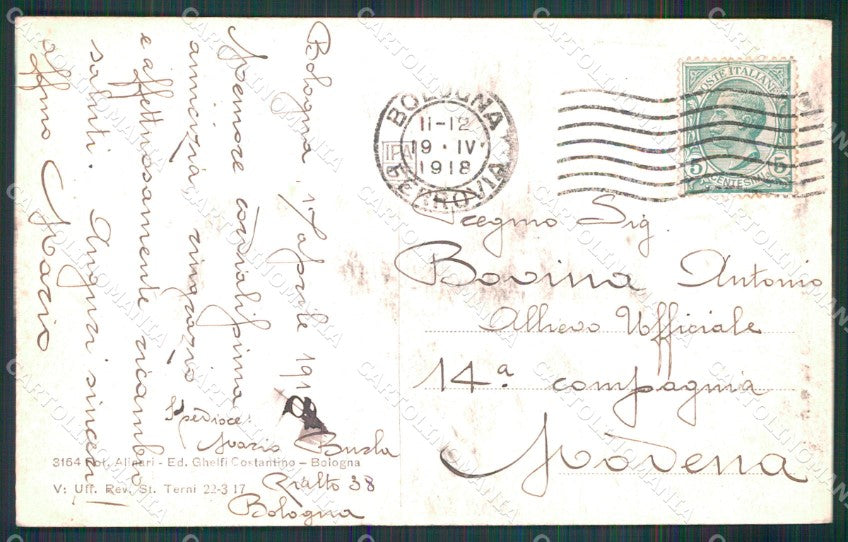 Bologna, 17 aprile 1918
Memore cordialissima
amicizia, ringrazio
e affettuosamente ricambio
saluti. Auguri sinceri!
affmo Mario
Spedisce:
Mario
Rialto 38
Bologna
3164 Fot. Alinari - Ed. Ghelfi Costantino - Bologna
V: Uff. Rev. St. Terni 22-3 17
BOLOGNA
11-12
19 · IV
1918
FERROVIA
POSTE ITALIANE
5 5
CENTESIMI
Sig.
Bovina Antonio
Allievo Ufficiale
14ª compagnia
Modena
CARTOLINOMANIA